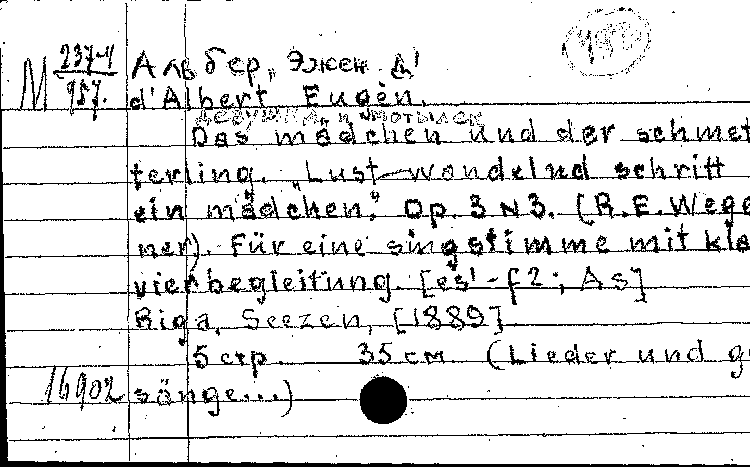 М 237-4/957. Альбер, Эжен д'
d'Albert Eugèn.
девушка и мотылек
Das mädchen und der schmet
terling. "Lust-wandelnd schritt
ein mädchen." Op. 3 N 3. (R.E. Wege
ner). Für eine singstimme mit kla
vierbegleitung. [es¹-f2; As]
Riga, Seezen, [1889]
5 стр. 35 см (Lieder und ge
16902 sänge...)